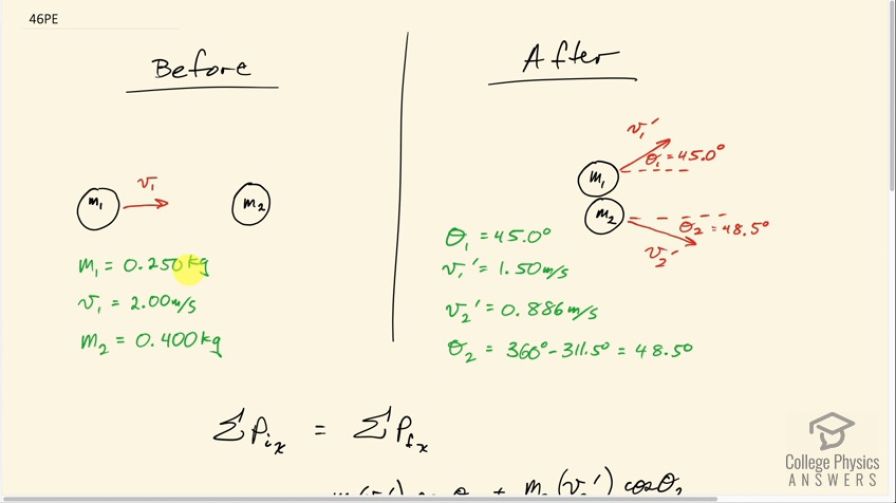 46PE
Before
After
v₁
m₁
m₂
m₁ = 0.250kg
v₁ = 2.00m/s
m₂ = 0.400kg
v₁'
θ₁ = 45.0°
m₁
m₂
θ₂ = 48.5°
v₂'
θ₁ = 45.0°
v₁' = 1.50m/s
v₂' = 0.886m/s
θ₂ = 360° - 311.5° = 48.5°
ΣPᵢₓ = ΣP_fₓ
+ m₂(v₂') cosθ₂
College Physics
ANSWERS